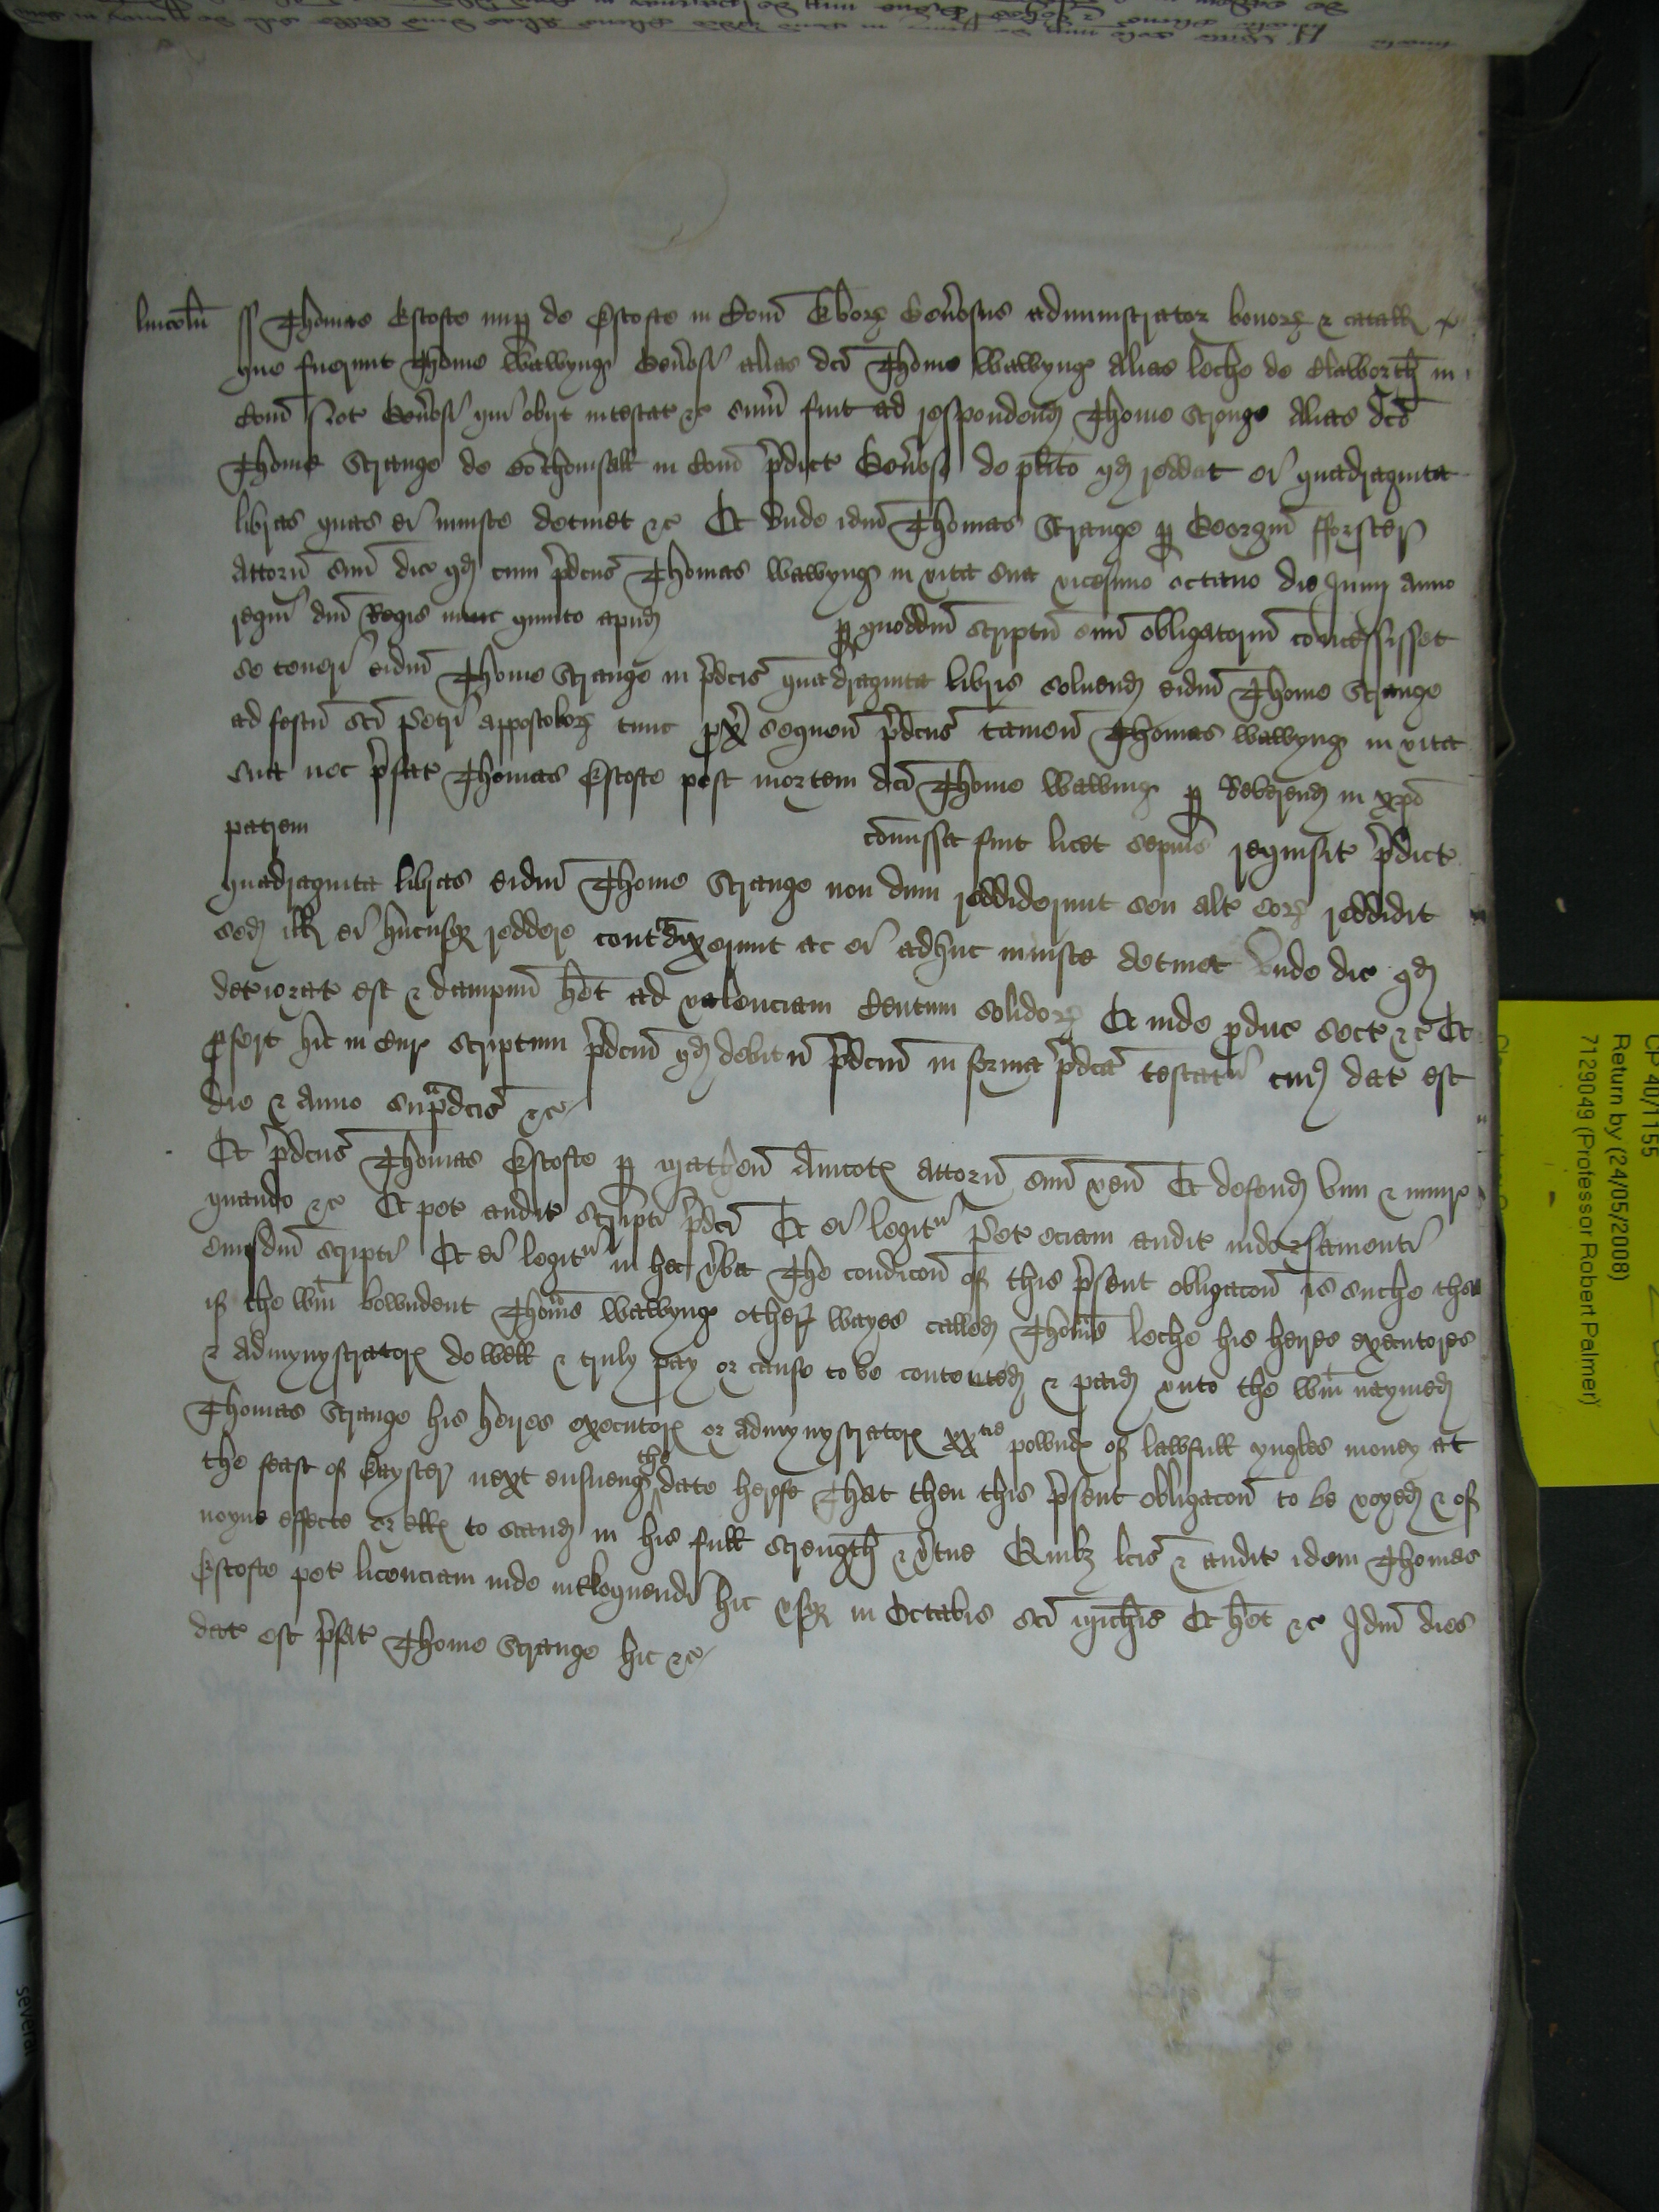 lincoln ss Thomas Estofte nup de Estofte in Com Ebor Gen'osus administrator bonor & catall
que fuerunt Thome Wawyng Gen'osi alias dci Thome Wawyng Alias leche de Claworth in
Com Not Gen'osi qui obijt intestat &c sum fuit ad respondend Thome Strange Alias dco
Thome Strange de in Com p'dict Gen'oso de plito qd reddat ei quadraginta
libras quas ei iniuste detinet &c Et unde idm Thomas Strange p Georgiu fforster
Attorn suu dic qd cum p'dcus Thomas Wawyng in vita sua vicesimo octavo die Junij anno
regni dni Regis nunc quinto apud p quoddm scriptu suu obligatoriu concessisset
se teneri eidm Thome Strange in p'dcis quadraginta libris solvend eidm Thome Strange
ad festu sci Petri appostolor tunc px sequen p'dcus tamen Thomas Wawyng in vita
sua nec p'fat Thomas Estofte post mortem dci Thome Wawing p Reverend in xpo
patrem comissa fuit licet sepius requisit p'dict
quadraginta libras eidm Thome Strange non dum reddiderunt seu alt eor reddidit
sed ill ei hucusq reddere contradixerunt ac ei adhuc iniuste detinet unde dic qd
deteriorat est & dampnu h'et ad valenciam Centum solidor Et inde produc sect &c Et
profert hic in Cur scriptum p'dcm qd debitu p'dcm in forma p'dca testatu cui9 dat est
die & anno sup'dcis &c
Et p'dcus Thomas Estofte p Matheu Amcot Attorn suu ven Et defend vim & iniur
quando &c Et pet audit scripti p'dci Et ei legit Pet eciam audit indorsamenti
eiusdm scripti Et ei legit in hec v'ba The condicon of this p'sent obligacon is suche that
if the w'in bownden Thomas Wawyng other wayes called Thomas leche his heires executores
& admynystrators do well & truly pay or cause to be contented & paid vnto the w'in naymed
Thomas Strange his heires executors or admynystrators xx tie pownds of lawfull yngles money at
the feast of Eayster next ensueng the date herof That then this p'sent obligacon to be voyed & of
noyne effecte or ells to stand in his full strength & v'tue Quibz lcis & audit idem Thomas
Estofte pet licenciam inde int'loquendi hic usq in Octabis sci Mich'is Et h'et &c Idm dies
dat est p'fat Thome Strange hic &c
CP 40/1155
Return by (24/05/2008)
7129049 (Professor Robert Palmer)
several